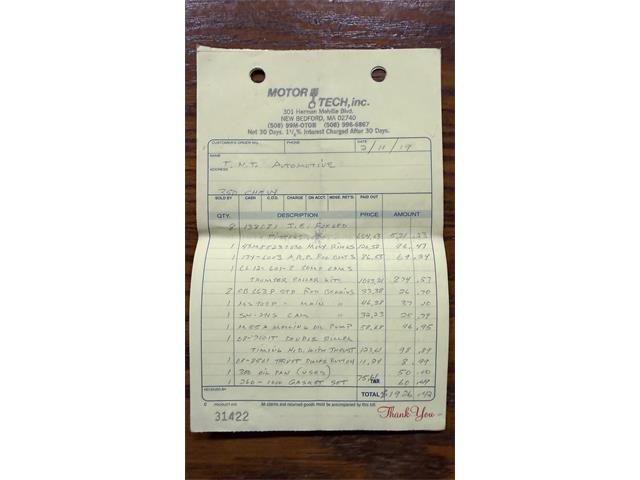 MOTOR TECH, inc.
301 Herman Melville Blvd.
NEW BEDFORD, MA 02740
(508) 99M-OTOR (508) 996-6867
Net 30 Days. 1½% Interest Charged After 30 Days.
CUSTOMER'S ORDER NO. PHONE DATE 2/11/19
NAME T.N.T. AUTOMOTIVE
ADDRESS
350 CHEVY
SOLD BY CASH C.O.D. CHARGE ON ACCT. MDSE. RET'D. PAID OUT
QTY. DESCRIPTION PRICE AMOUNT
8 J.E. FORGED
PISTONS 521.23
1 MOLY RINGS 96.47
1 134-6003 A.R.P. ROD BOLTS 86.55 69.24
1 COMP CAMS
THUMPER ROLLER KIT 874.57
2 CB 663P STD ROD BEARINGS 33.38 26.70
1 MS909P - MAIN " 46.38 37.10
1 CAM " 32.23 25.79
1 M55A MELLING OIL PUMP 58.68 46.95
1 DOUBLE ROLLER
TIMING H.D. WITH THRUST 123.61 98.89
1 THRUST BUTTON 8.99
1 350 OIL PAN (USED) 50.00
1 260-1000 GASKET SET 75.61 TAX 60.49
RECEIVED BY TOTAL $1926.42
PRODUCT 610 All claims and returned goods must be accompanied by this bill.
31422 Thank You